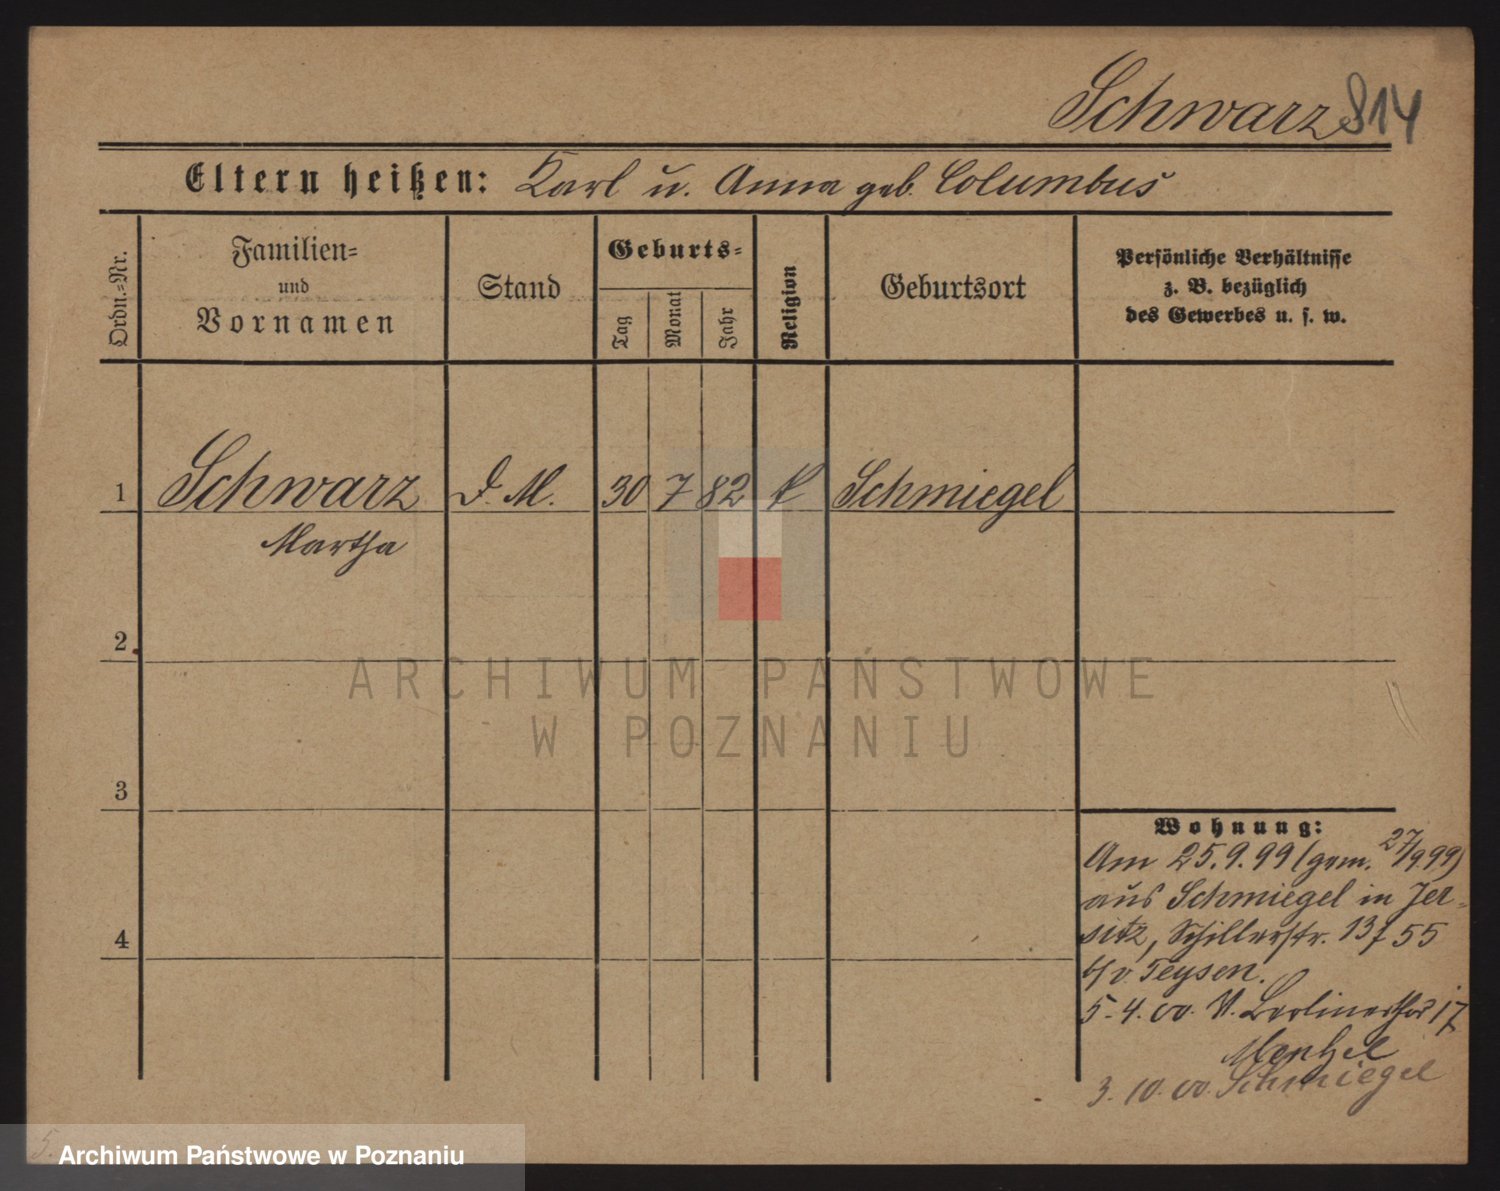 Schwarz 814
Eltern heißen: Karl u. Anna geb. Columbus
Ordn.-Nr.
Familien-
und
Vornamen
Stand
Geburts-
Tag
Monat
Jahr
Religion
Geburtsort
Persönliche Verhältnisse
z. B. bezüglich
des Gewerbes u. s. w.
1 Schwarz D. M. 30 7 82 k Schmiegel
Martha
2
3
4
ARCHIWUM PAŃSTWOWE
W POZNANIU
Wohnung:
Am 25.9.99 (gem. 27/9 99)
aus Schmiegel in Jer-
sitz, Schillerstr. 13 f 55
b/v Teysen.
5.4.00. V. Berlinerthor 17
Menzel
3.10.00. Schmiegel
5.
Archiwum Państwowe w Poznaniu